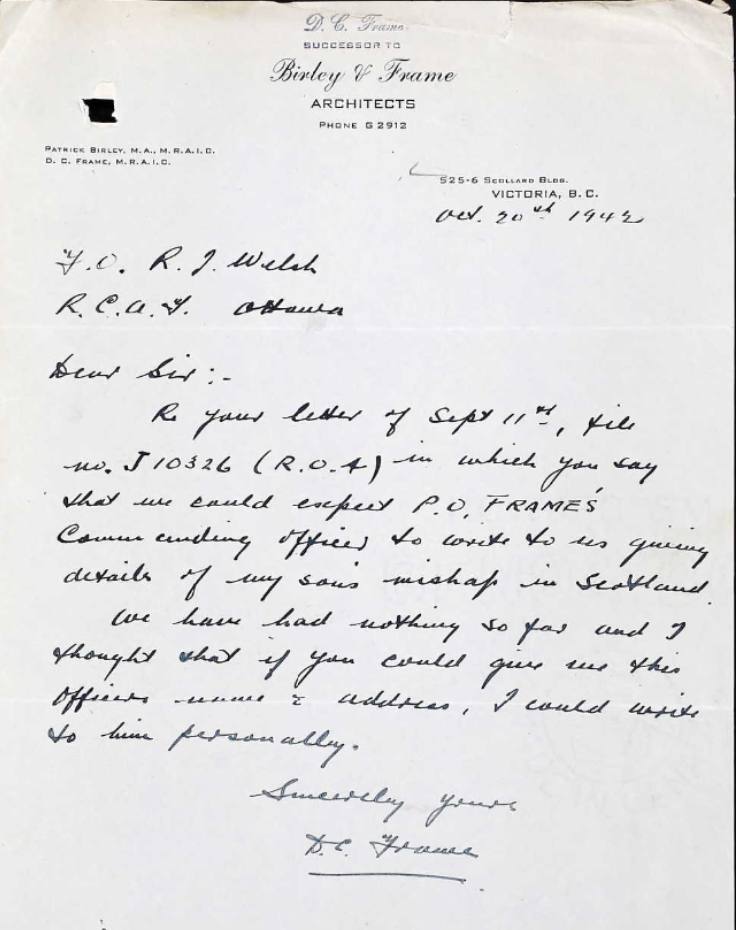 D. C. Frame.
SUCCESSOR TO
Birley & Frame
ARCHITECTS
PHONE G 2912
PATRICK BIRLEY, M.A., M.R.A.I.C.
D. C. FRAME, M.R.A.I.C.
525-6 SCOLLARD BLDG.
VICTORIA, B.C.
Oct. 20th 1942
F.O. R. J. Welsh
R.C.A.F. Ottawa
Dear Sir:-
Re your letter of Sept 11th, file
no. J10326 (R.O.4) in which you say
that we could expect P.O. FRAME'S
Commanding officer to write to us giving
details of my sons mishap in Scotland.
We have had nothing so far and I
thought that if you could give me this
Officers name & address, I could write
to him personally.
Sincerely yours
D.C. Frame